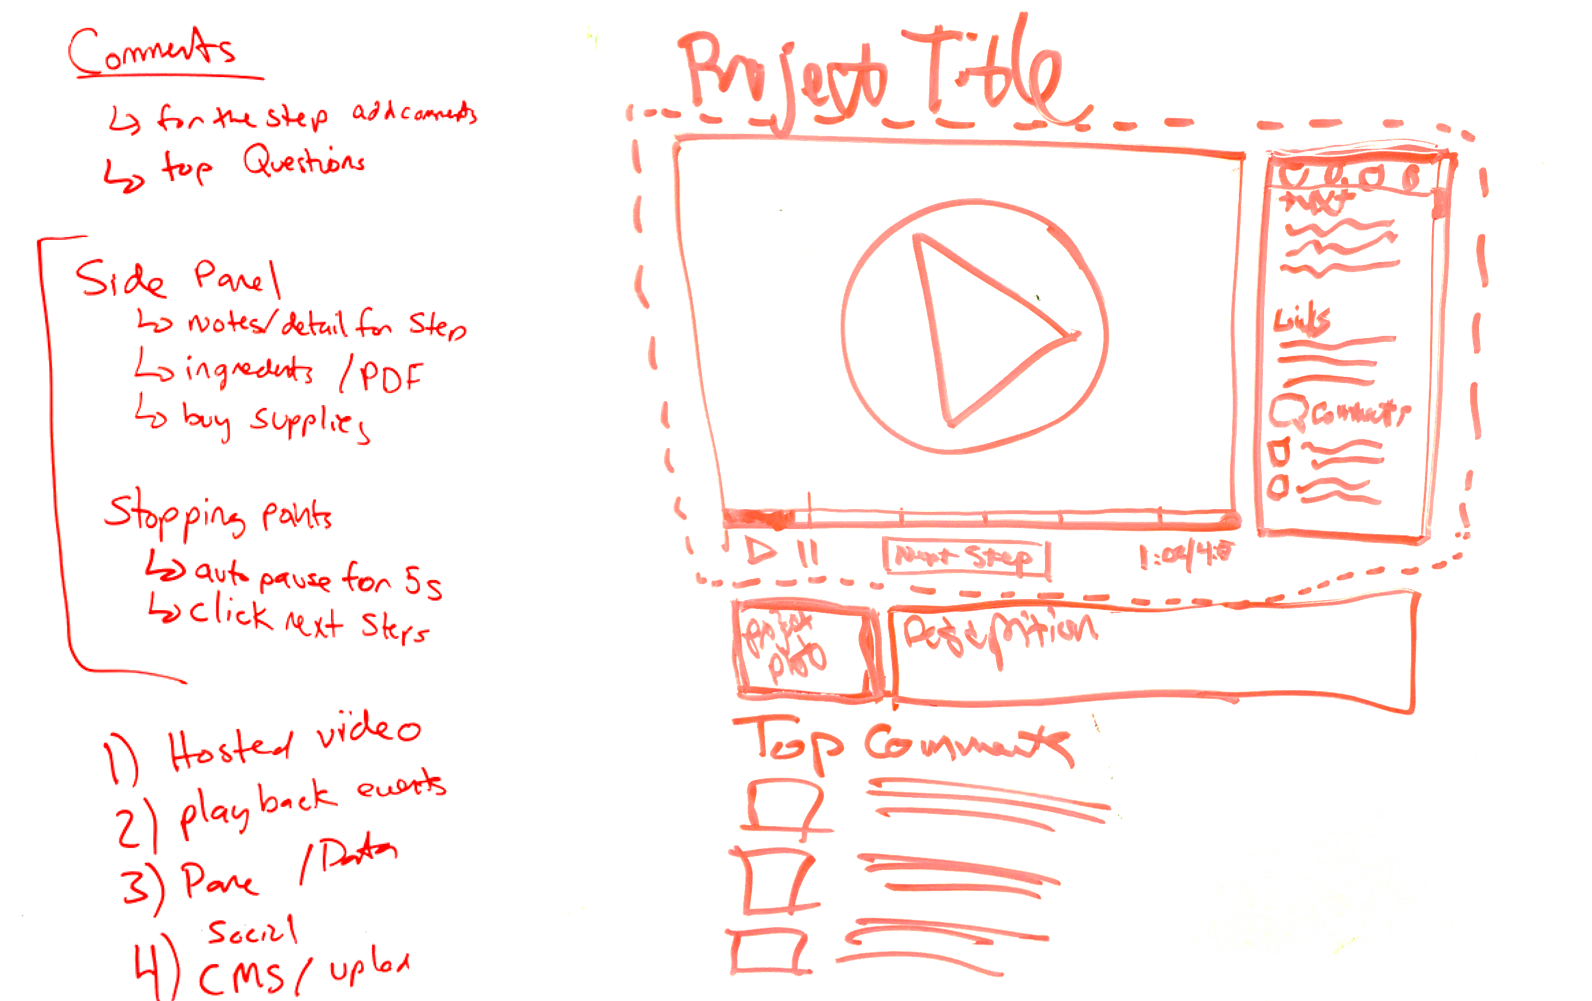 Comments
↳ for the step add comments
↳ top Questions
Side Panel
↳ notes/detail for Step
↳ ingredents /PDF
↳ buy supplies
Stopping points
↳ auto pause for 5s
↳ click next Steps
1) Hosted video
2) playback events
3) Pane /Data
social
4) CMS/
Project Title
text
Links
Comments
Next Step
project
photo
Description
Top Comments